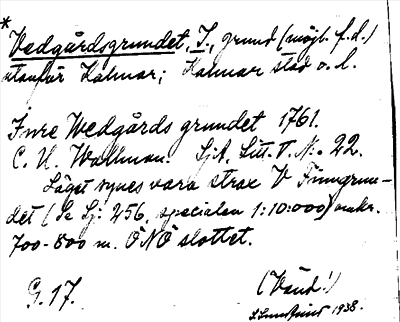 * Vedgårdsgrundet, I., grund (möjl. f.d.)
utanför Kalmar; Kalmar stad o. l.
Inre Wedgårds grundet 1761.
C. U. Wallman. SjA, Litt. T. N:o 22.
Läget synes vara strax V Finngrun-
det (Se Sj. 256, specialen 1:10:000) omkr.
700-800 m. ÖNÖ slottet.
G. 17.
(Vänd!)
1938.